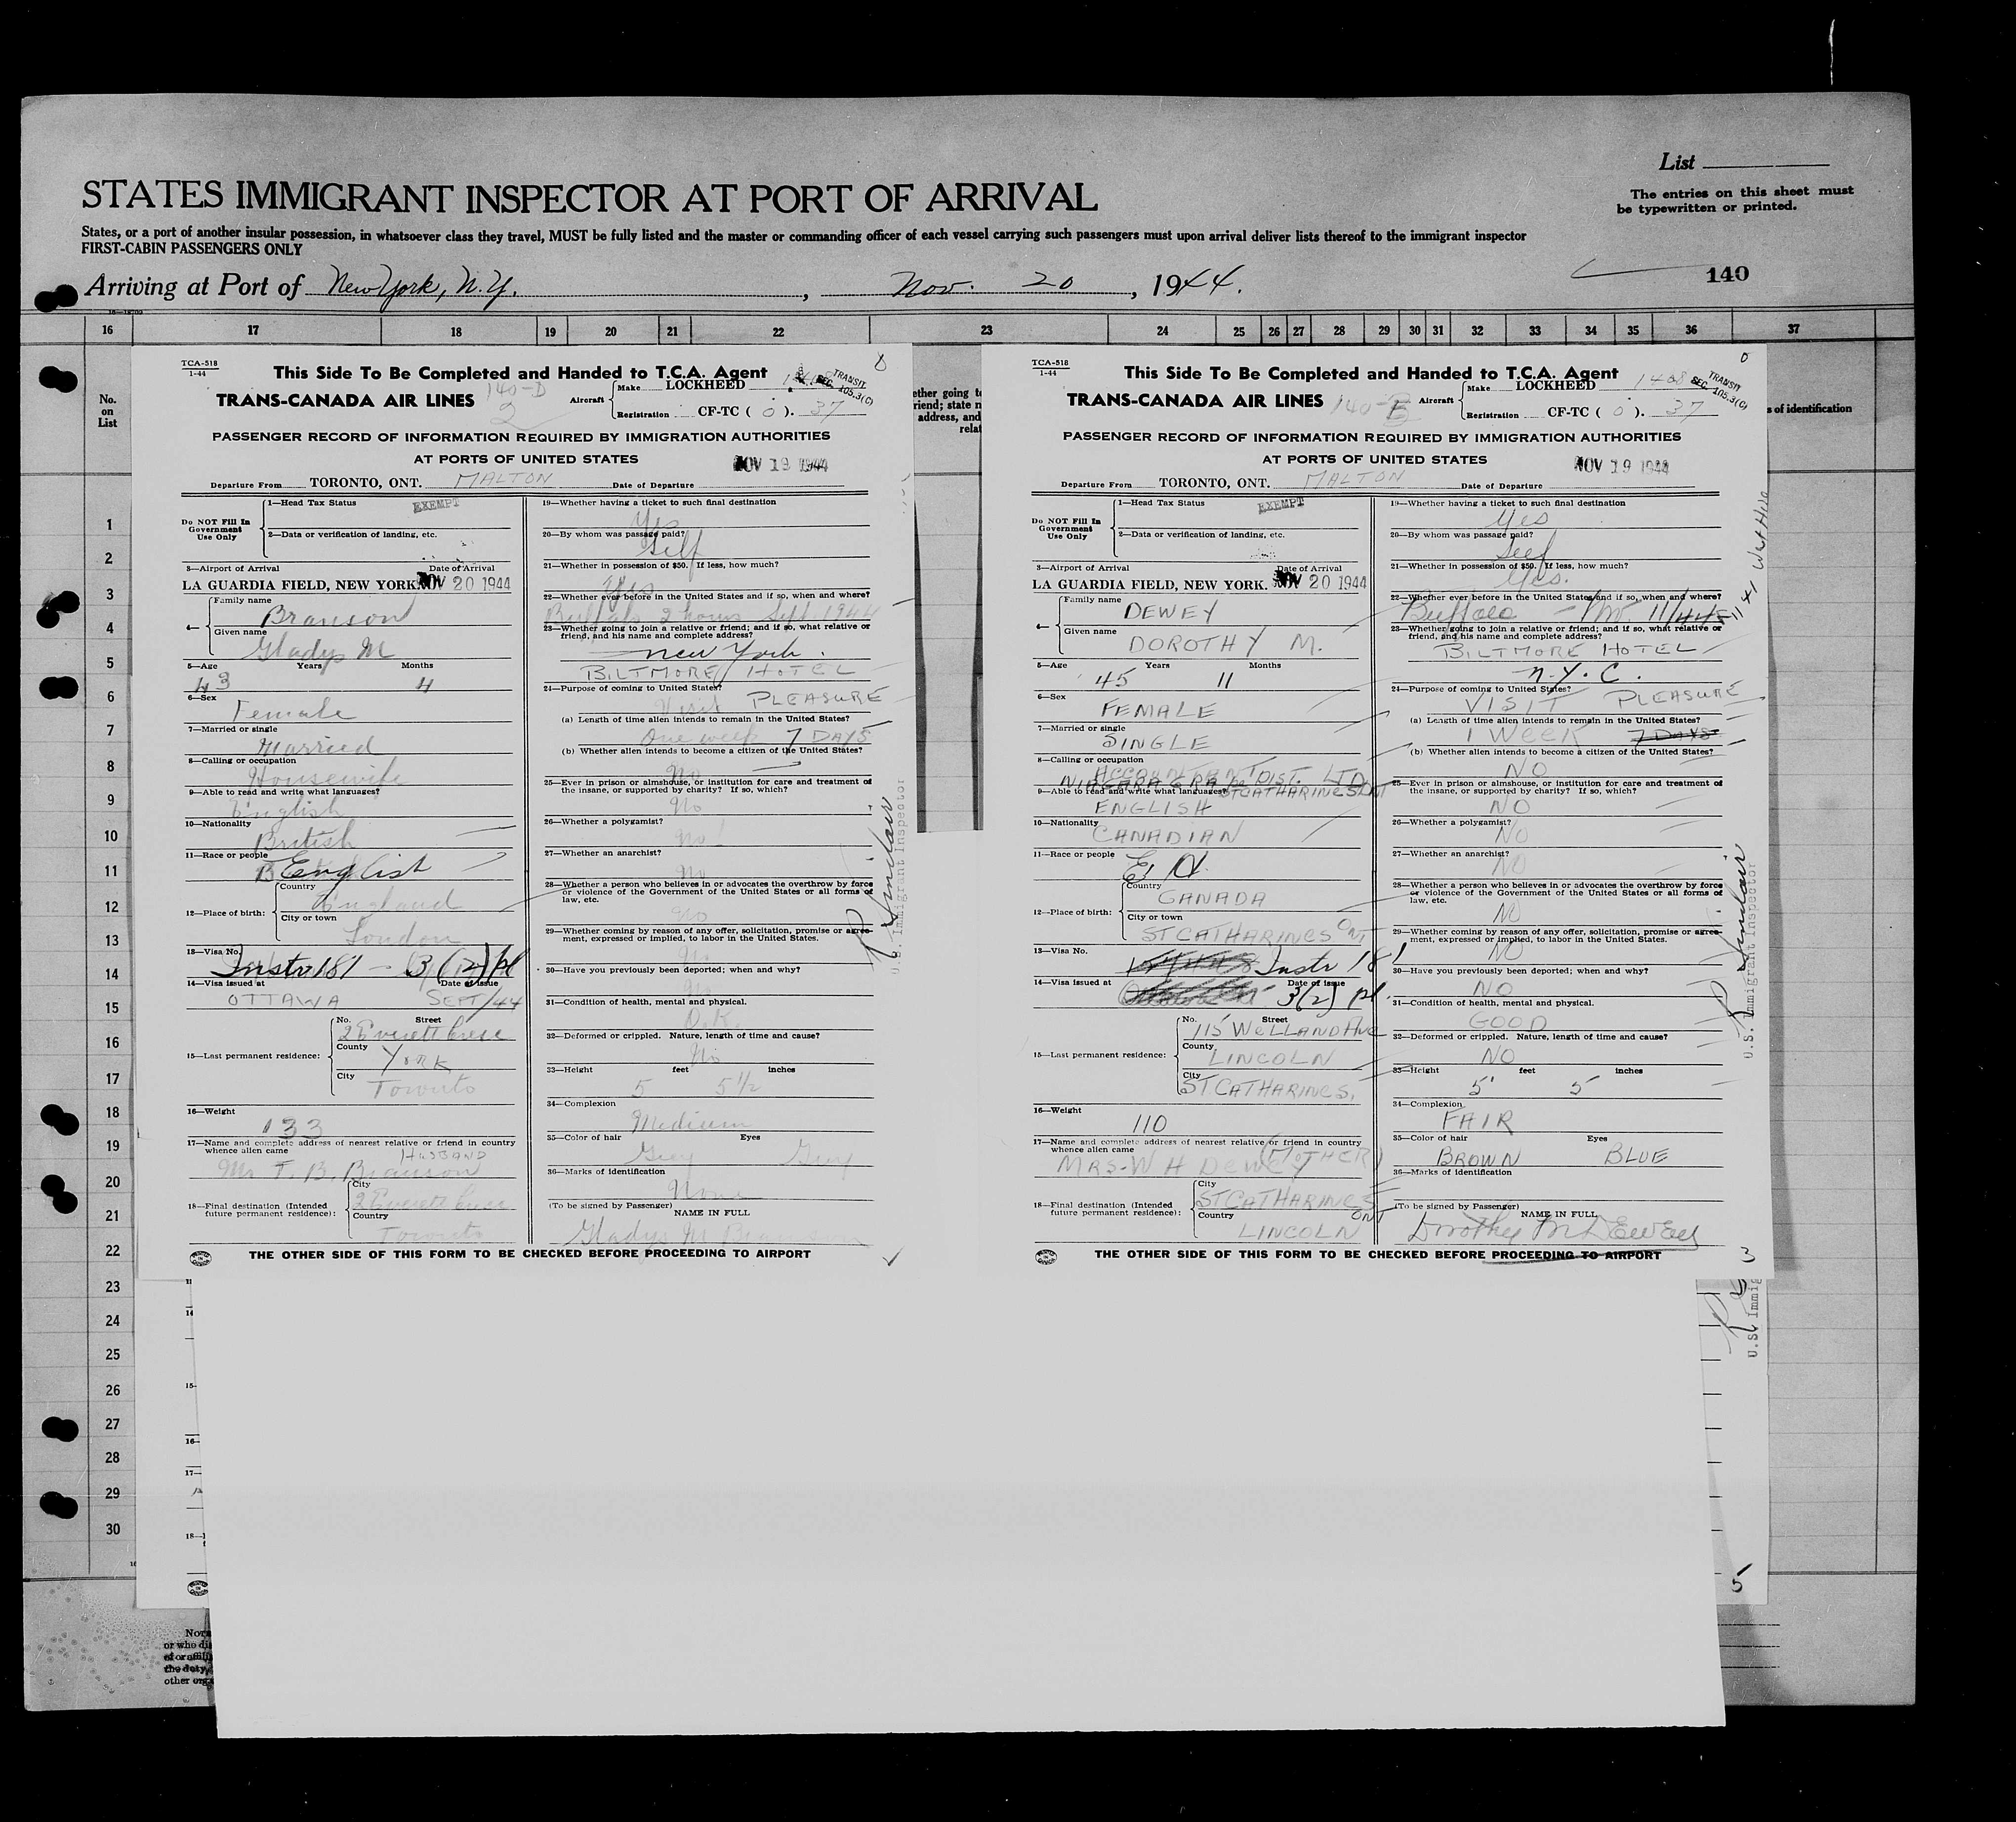 List
STATES IMMIGRANT INSPECTOR AT PORT OF ARRIVAL
The entries on this sheet must
be typewritten or printed.
States, or a port of another insular possession, in whatsoever class they travel, MUST be fully listed and the master or commanding officer of each vessel carrying such passengers must upon arrival deliver lists thereof to the immigrant inspector
FIRST-CABIN PASSENGERS ONLY
Arriving at Port of New York, N.Y., Nov. 20, 1944.
140
16 17 18 19 20 21 22 23 24 25 26 27 28 29 30 31 32 33 34 35 36 37
No.
on
List
1
2
3
4
5
6
7
8
9
10
11
12
13
14
15
16
17
18
19
20
21
22
23
24
25
26
27
28
29
30
TCA-518
1-44
This Side To Be Completed and Handed to T.C.A. Agent
TRANS-CANADA AIR LINES 140-D
2
Aircraft Make LOCKHEED
Registration CF-TC ( 0 ). 37
TRANSIT
SEC. 105.3(C)
PASSENGER RECORD OF INFORMATION REQUIRED BY IMMIGRATION AUTHORITIES
AT PORTS OF UNITED STATES
NOV 19 1944
Departure From TORONTO, ONT. MALTON Date of Departure
Do NOT Fill In
Government
Use Only
1—Head Tax Status EXEMPT
2—Data or verification of landing, etc.
3—Airport of Arrival Date of Arrival
LA GUARDIA FIELD, NEW YORK. NOV 20 1944
4— Family name
Branson
Given name
Gladys M
5—Age Years Months
43 4
6—Sex
Female
7—Married or single
Married
8—Calling or occupation
Housewife
9—Able to read and write what languages?
English
10—Nationality
British
11—Race or people
English
12—Place of birth: Country
England
City or town
London
13—Visa No.
Instr 181 - 3(12) pl
14—Visa issued at Date of issue
OTTAWA SEPT/44
15—Last permanent residence: No. Street
2 Everett Cresc
County
YORK
City
Toronto
16—Weight
133
17—Name and complete address of nearest relative or friend in country
whence alien came HUSBAND
Mr T. B. Branson
18—Final destination (Intended
future permanent residence): City
2 Everett Cresc
Country
Toronto
19—Whether having a ticket to such final destination
Yes
20—By whom was passage paid?
Self
21—Whether in possession of $50. If less, how much?
Yes
22—Whether ever before in the United States and if so, when and where?
Buffalo 2 hours Sept 1944
23—Whether going to join a relative or friend; and if so, what relative or
friend, and his name and complete address?
New York.
BILTMORE HOTEL
24—Purpose of coming to United States?
Visit PLEASURE
(a) Length of time alien intends to remain in the United States?
One week 7 DAYS
(b) Whether alien intends to become a citizen of the United States?
No
25—Ever in prison or almshouse, or institution for care and treatment of
the insane, or supported by charity? If so, which?
No
26—Whether a polygamist?
No
27—Whether an anarchist?
No
28—Whether a person who believes in or advocates the overthrow by force
or violence of the Government of the United States or all forms of
law, etc.
No
29—Whether coming by reason of any offer, solicitation, promise or agree-
ment, expressed or implied, to labor in the United States.
No
30—Have you previously been deported; when and why?
No
31—Condition of health, mental and physical.
O.K.
32—Deformed or crippled. Nature, length of time and cause?
No
33—Height feet inches
5 5 1/2
34—Complexion
Medium
35—Color of hair Eyes
Grey Grey
36—Marks of identification
None
(To be signed by Passenger)
NAME IN FULL
Gladys M Branson
THE OTHER SIDE OF THIS FORM TO BE CHECKED BEFORE PROCEEDING TO AIRPORT
Sinclair
U.S. Immigrant Inspector
TCA-518
1-44
This Side To Be Completed and Handed to T.C.A. Agent
TRANS-CANADA AIR LINES 140-E
Aircraft Make LOCKHEED 1408
Registration CF-TC ( 0 ). 37
TRANSIT
SEC. 105.3(C)
PASSENGER RECORD OF INFORMATION REQUIRED BY IMMIGRATION AUTHORITIES
AT PORTS OF UNITED STATES
NOV 19 1944
Departure From TORONTO, ONT. MALTON Date of Departure
Do NOT Fill In
Government
Use Only
1—Head Tax Status EXEMPT
2—Data or verification of landing, etc.
3—Airport of Arrival Date of Arrival
LA GUARDIA FIELD, NEW YORK. NOV 20 1944
4— Family name
DEWEY
Given name
DOROTHY M.
5—Age Years Months
45 11
6—Sex
FEMALE
7—Married or single
SINGLE
8—Calling or occupation
ACCOUNTANT
NIAGARA GRAPE DIST. LTD
9—Able to read and write what languages? ST CATHARINES ONT
ENGLISH
10—Nationality
CANADIAN
11—Race or people
12—Place of birth: Country
CANADA
City or town
ST CATHARINES ONT
13—Visa No.
Instr 181
14—Visa issued at Date of issue
3(2) pl.
15—Last permanent residence: No. Street
115 WELLAND AVE
County
LINCOLN
City
ST. CATHARINES.
16—Weight
110
17—Name and complete address of nearest relative or friend in country
whence alien came (MOTHER)
MRS. W H DEWEY
18—Final destination (Intended
future permanent residence): City
ST CATHARINES
ONT
Country
LINCOLN
19—Whether having a ticket to such final destination
Yes
20—By whom was passage paid?
Self
21—Whether in possession of $50. If less, how much?
Yes.
22—Whether ever before in the United States and if so, when and where?
Buffalo
23—Whether going to join a relative or friend; and if so, what relative or
friend, and his name and complete address?
BILTMORE HOTEL
N.Y.C.
24—Purpose of coming to United States?
VISIT PLEASURE
(a) Length of time alien intends to remain in the United States?
1 WEEK 7 DAYS
(b) Whether alien intends to become a citizen of the United States?
NO
25—Ever in prison or almshouse, or institution for care and treatment of
the insane, or supported by charity? If so, which?
NO
26—Whether a polygamist?
NO
27—Whether an anarchist?
NO
28—Whether a person who believes in or advocates the overthrow by force
or violence of the Government of the United States or all forms of
law, etc.
NO
29—Whether coming by reason of any offer, solicitation, promise or agree-
ment, expressed or implied, to labor in the United States.
NO
30—Have you previously been deported; when and why?
NO
31—Condition of health, mental and physical.
GOOD
32—Deformed or crippled. Nature, length of time and cause?
NO
33—Height feet inches
5' 5
34—Complexion
FAIR
35—Color of hair Eyes
BROWN BLUE
36—Marks of identification
(To be signed by Passenger)
NAME IN FULL
Dorothy M Dewey
THE OTHER SIDE OF THIS FORM TO BE CHECKED BEFORE PROCEEDING TO AIRPORT
Sinclair
U.S. Immigrant Inspector
s of identification